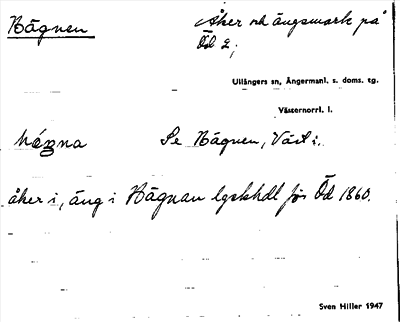 Bägnen
Åker och ängsmark på
Öd 2;
Ullångers sn, Ångermanl. s. doms. tg.
Västernorrl. l.
Se Bägnen, Väst i.
åker i, äng i Bägnan lgskhdl för Öd 1860.
Sven Hiller 1947